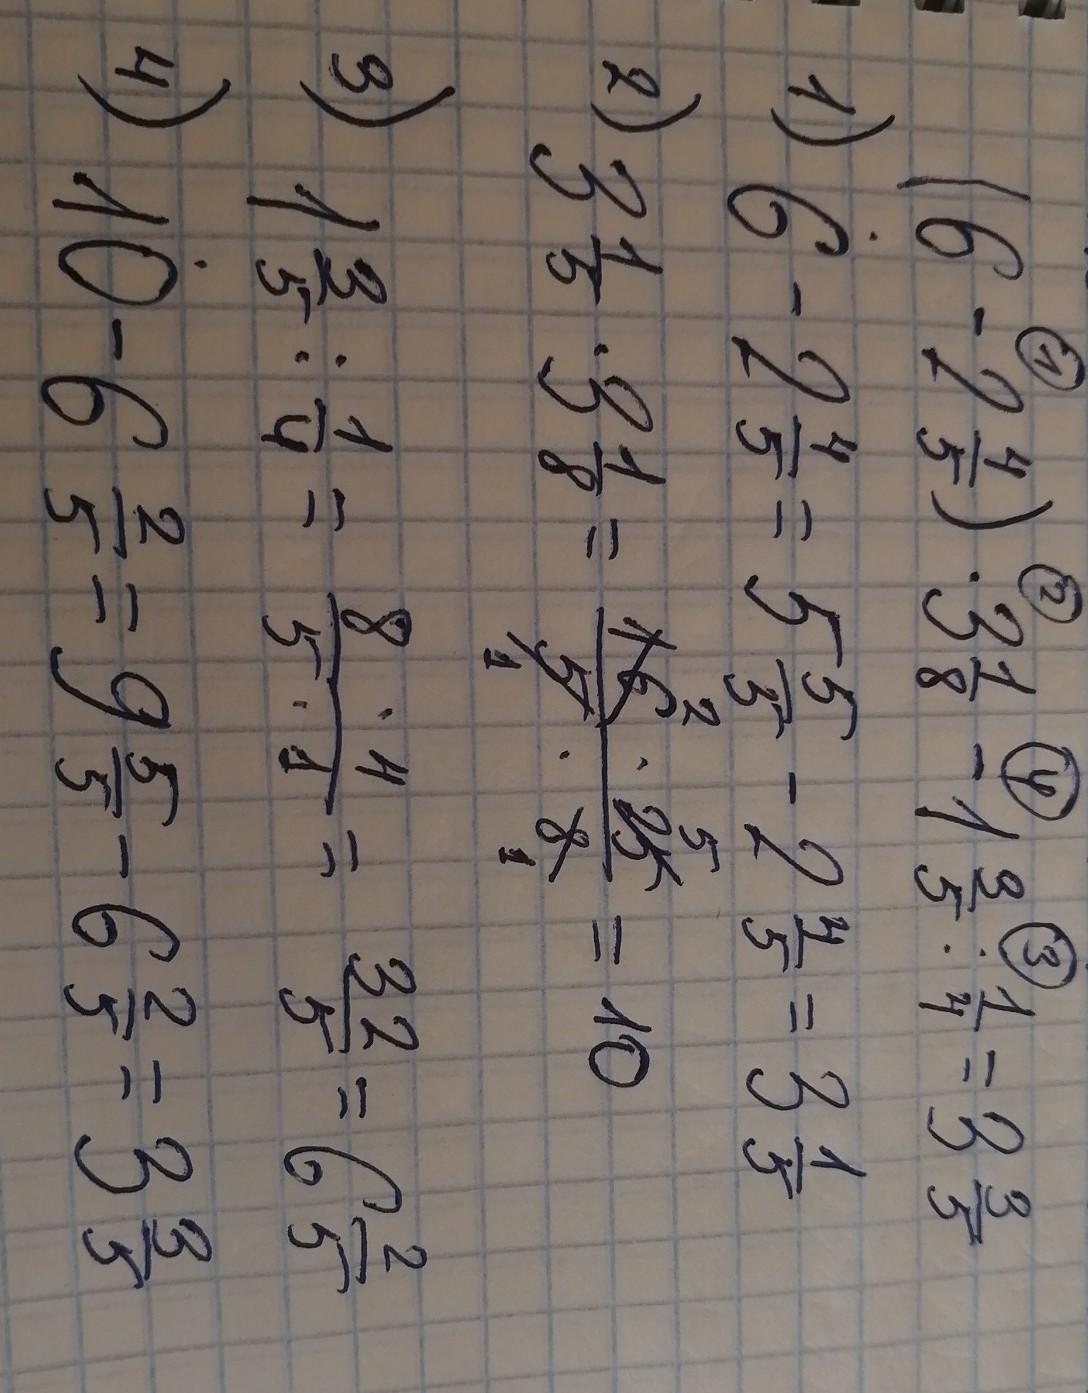 (6 - 2 4/5) · 3 1/8 - 1 3/5 : 1/4 = 3 3/5
1) 6 - 2 4/5 = 5 5/5 - 2 4/5 = 3 1/5
2) 3 1/5 · 3 1/8 = 16 · 25 / 5 · 8 = 10
3) 1 3/5 : 1/4 = 8 · 4 / 5 · 1 = 32/5 = 6 2/5
4) 10 - 6 2/5 = 9 5/5 - 6 2/5 = 3 3/5